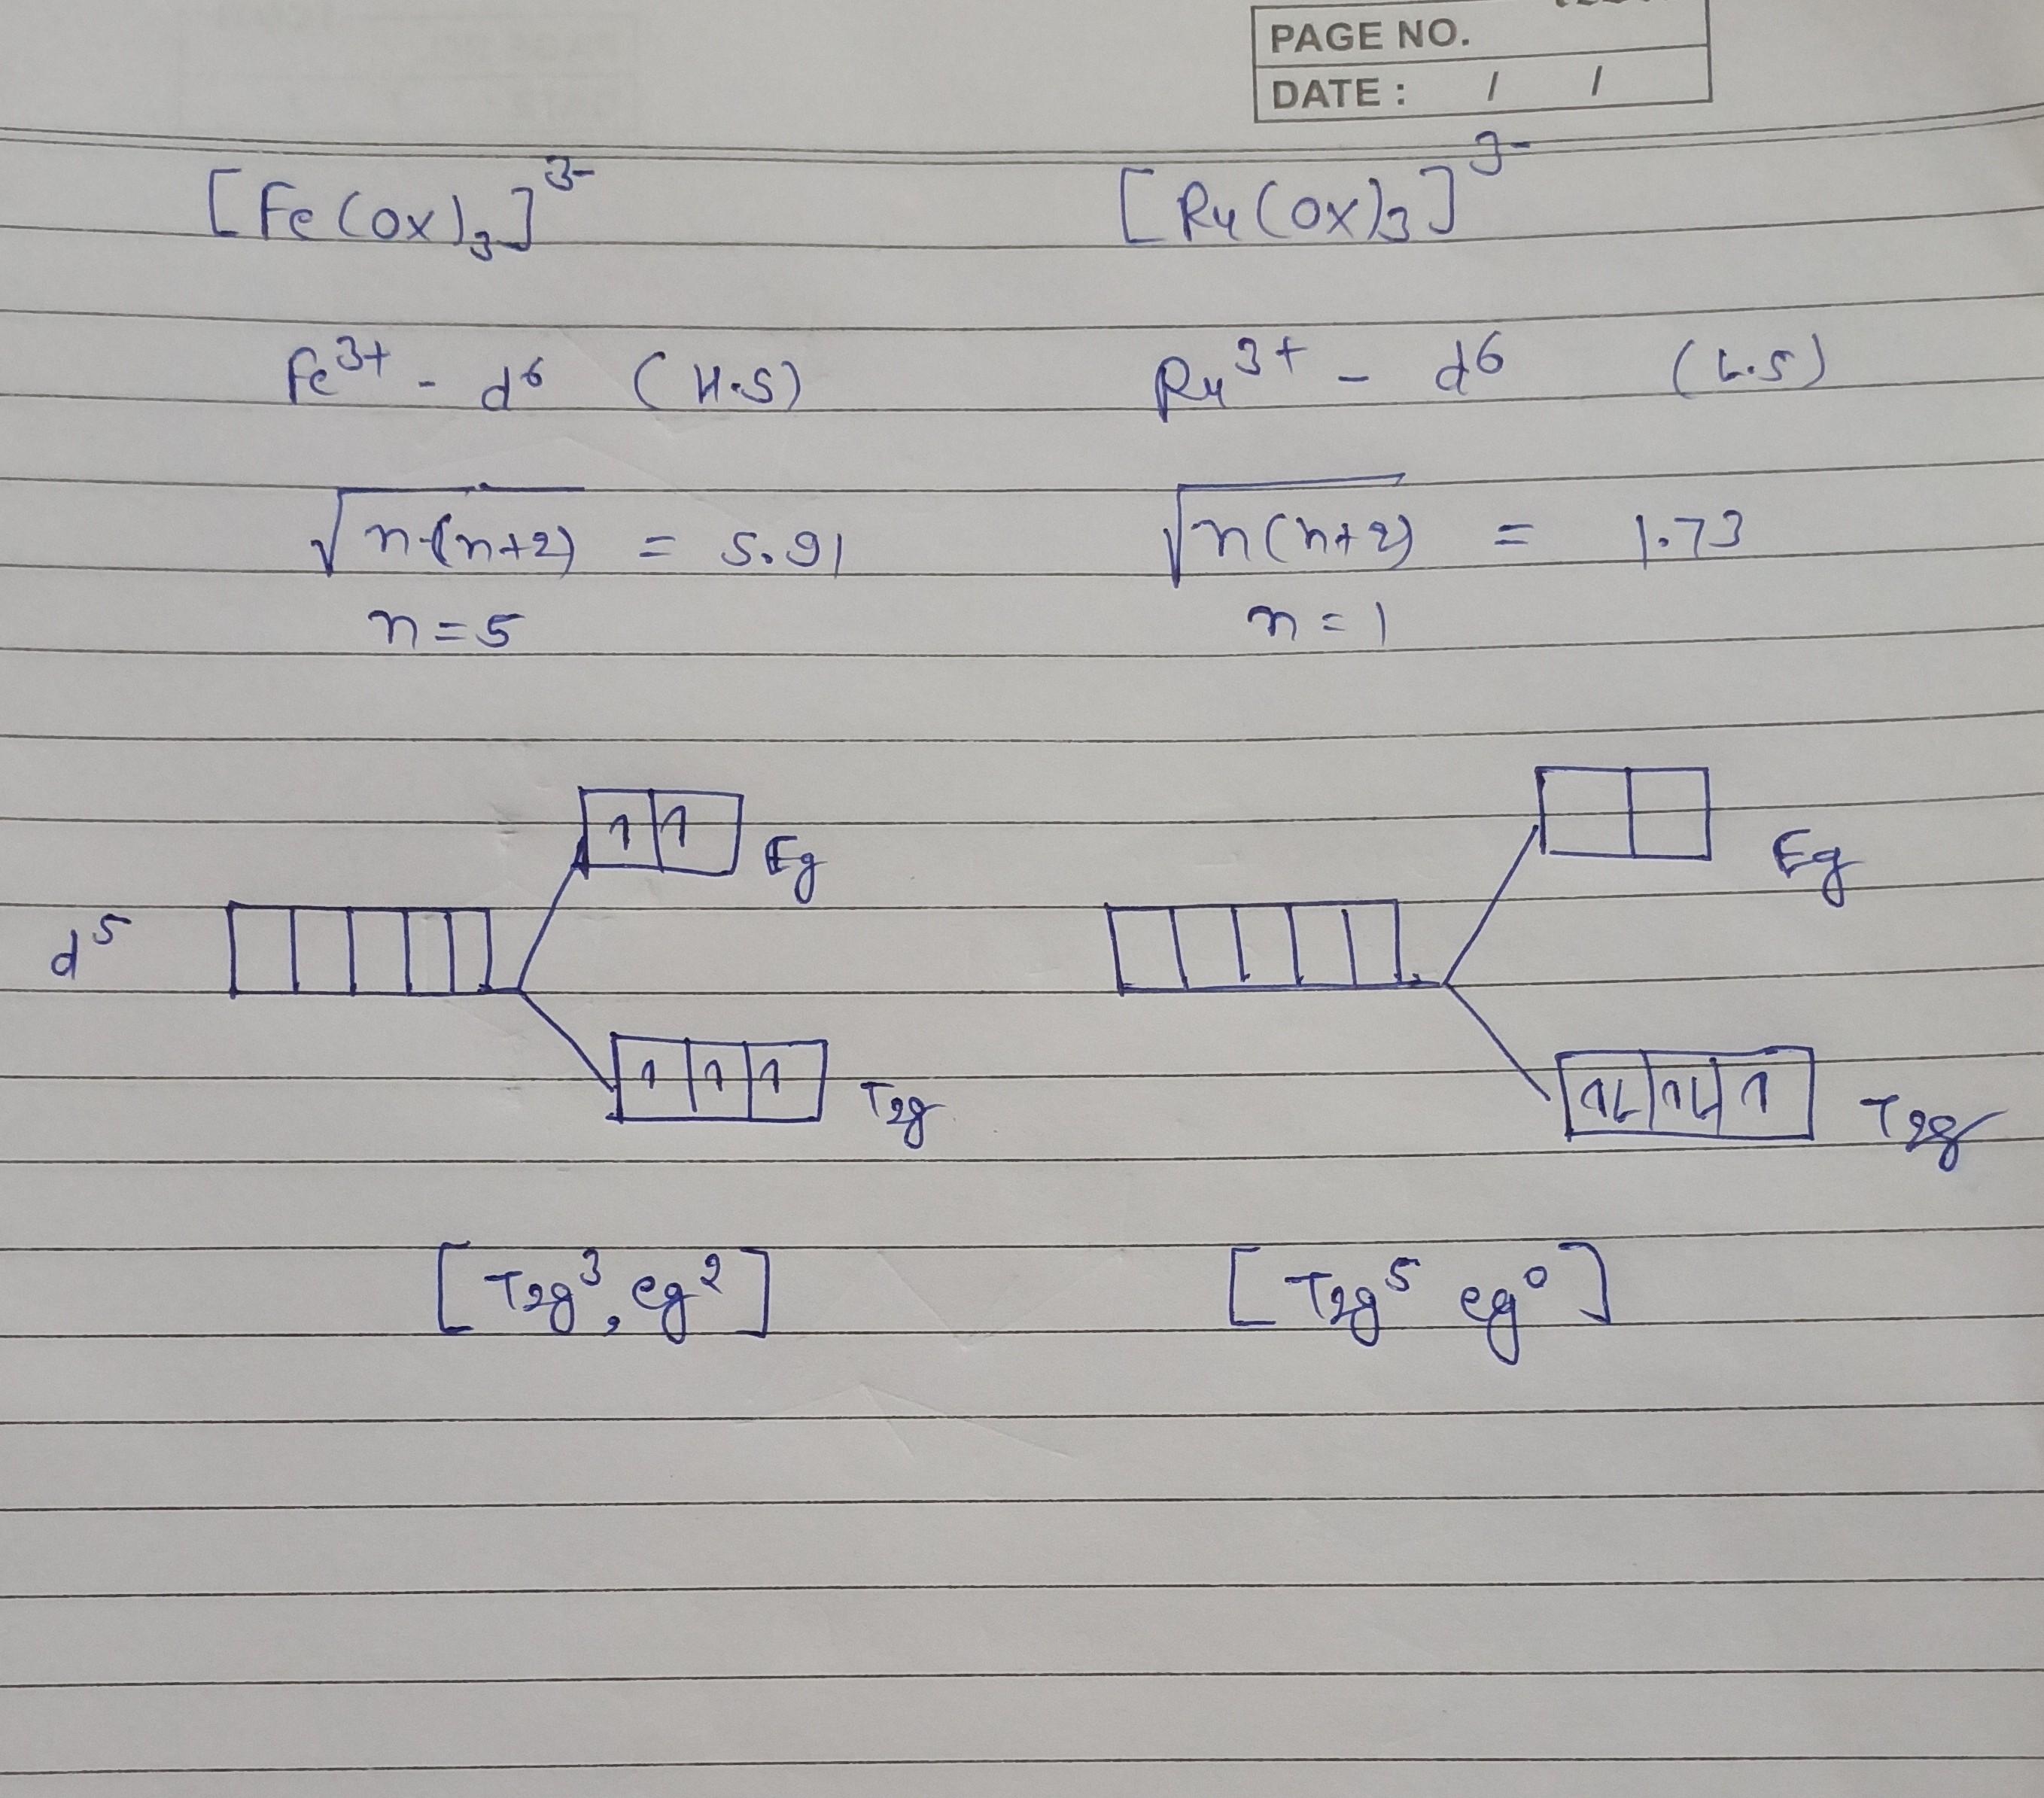 PAGE NO.
DATE : / /
[Fe(ox)₃]³⁻ [Ru(ox)₃]³⁻
Fe³⁺ - d⁶ (H.S) Ru³⁺ - d⁶ (L.S)
√n(n+2) = 5.91 √n(n+2) = 1.73
n=5 n=1
1 1 Eg Eg
d⁵
1 1 1 T2g 1L 1L 1 T2g
[T2g³, eg²] [T2g⁵ eg⁰]